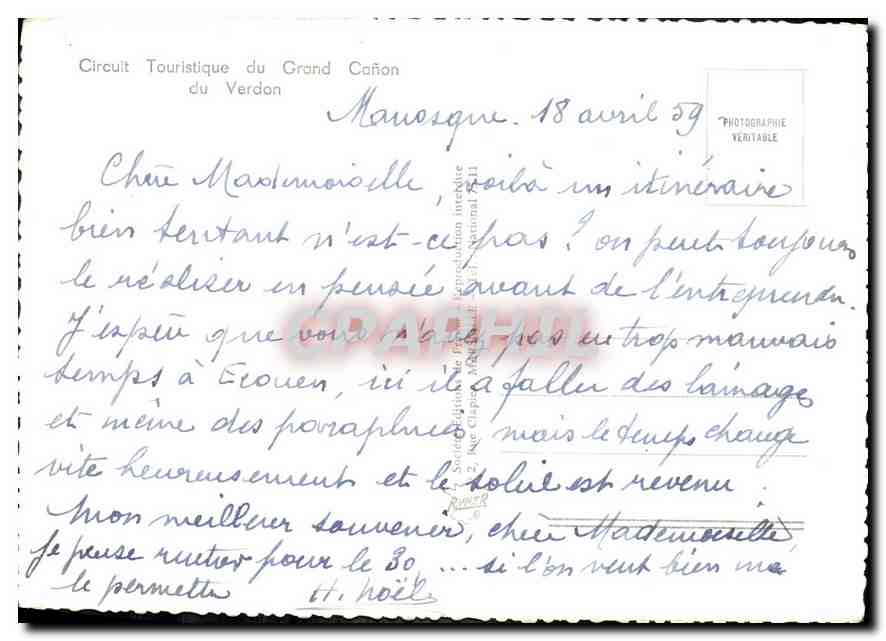 Circuit Touristique du Grand Cañon
du Verdon
Manosque. 18 avril 59
PHOTOGRAPHIE
VÉRITABLE
Chère Mademoiselle, voilà un itinéraire
bien tentant n'est-ce pas? on peut toujours
le réaliser en pensée avant de l'entreprendre.
J'espère que vous n'avez pas eu trop mauvais
temps à Ecouen, ici il a fallu des lainages
et même des parapluies, mais le temps change
vite heureusement et le soleil est revenu.
Mon meilleur souvenir, chère Mademoiselle,
je pense rentrer pour le 30 ... si l'on veut bien me
le permettre H. Noële
Société Editions de France Reproduction interdite
2, Rue Clapier, MARSEILLE National
RYNER
CPAPHIL